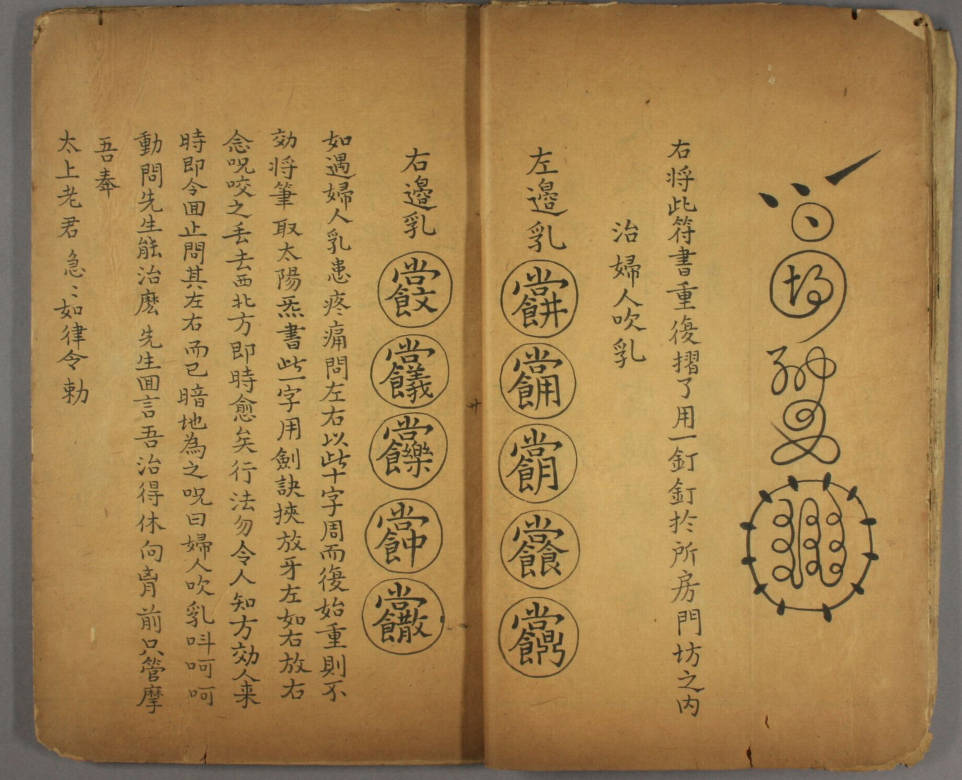 右將此符書重復摺了用一釘釘扵所房門坊之内
治婦人吹乳
左邉乳
右邉乳
如遇婦人乳患疼痛問左右以此十字周而復始重則不
効將筆取太陽炁書此一字用劍訣挾放牙左如右放右
念呪咬之丢去西北方即時愈矣行法勿令人知方効人来
時即令囬止問其左右而已暗地為之呪曰婦人吹乳呌呵呵
動問先生能治麽先生囬言吾治得休向前只管摩
吾奉
太上老君急〻如律令勅